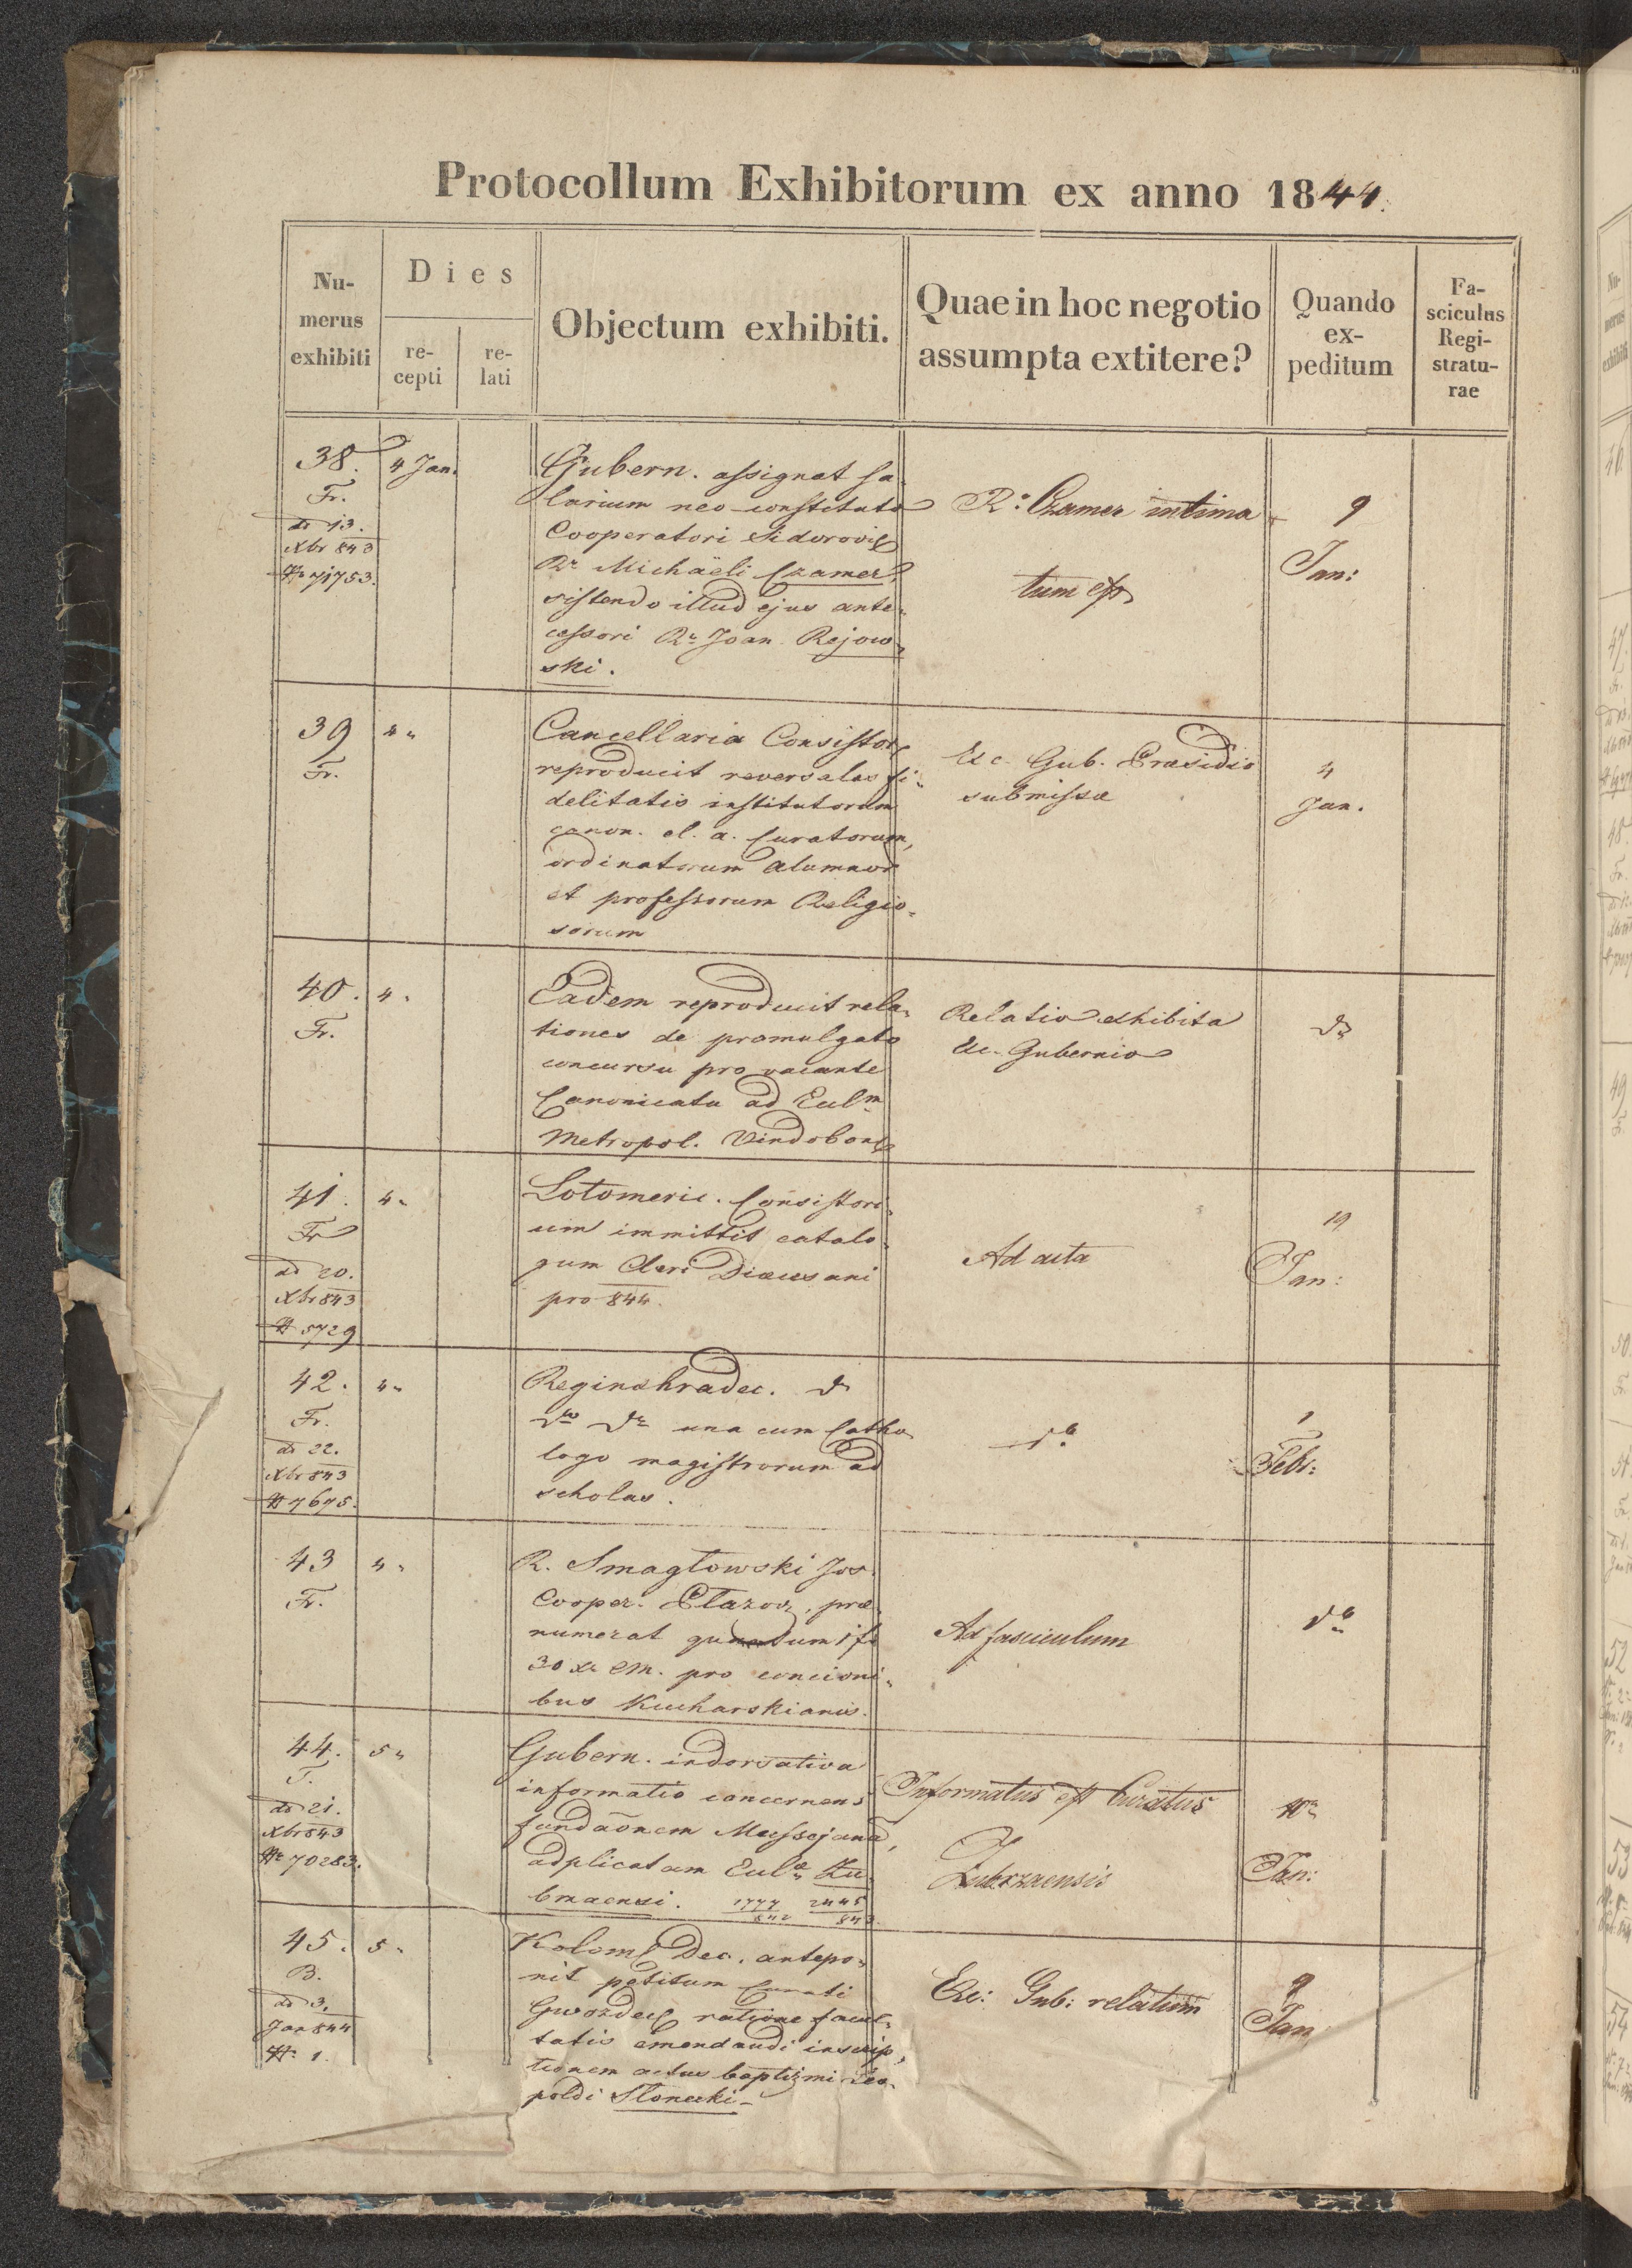 Protocollum Exhibitorum ex anno 1844.
Nu-
merus
exhibiti
Dies
re-
cepti
re-
lati
Objectum exhibiti.
Quae in hoc negotio
assumpta extitere?
Quando
ex-
peditum
Fa-
sciculus
Regi-
stratu-
rae
38.
Fr.
dd 13.
Xbr 843
Nr 71753.
4 Jan.
Gubern. assignat sa
larium neo-constituto
Cooperatori Sidorovie
Rr Michaëli Czamer
sistendo illud ejus ante-
cessori Rr Joan Rejow-
ski.
Rs Czamer intima
tum est
9
Jan:
39
Fr.
4 "
Cancellaria Consistor
reproducit reversales fi-
delitatis institutorum
canon. el. a. Curatorum,
ordinatorum alumnor
et professorum Religio-
sorum
Exc. Gub. Præsidio
submissæ
4
Jan.
40.
Fr.
4 "
Eadem reproducit rela-
tiones de promulgato
concursu pro vacante
Canonicatu ad Eccl m
Metropol. Vindobone
Relatio exhibita
Exc. Gubernio
do
41.
Fr
dd 20.
Xbr 843
N 5729
4 "
Litomeric. Consistori-
um immittit catalo-
gum Cleri Diœcesani
pro 844.
Ad acta
19
Jan:
42.
Fr.
dd 22.
Xbr 843
N 7675.
4 "
Reginohradec. do
do do una cum Catha
logo magistrorum ad
scholas.
do
1
Febr:
43
Fr.
4 "
R. Smagłowski Jos.
Cooper. Płazov, præ-
numerat 1 f
30 xr CM. pro concioni-
bus Kucharskianis.
Ad fasciculum
do
44.
T.
dd 21.
Xbr 843
Nr 70283.
5 "
Gubern. indorsativa
informatio concernens
fundaõnem
adplicatam Eccl Zu
brzaensi. 1777/842 2445/843
Informatus est Curatus
Zubrzaensis
Jan:
45.
B.
dd 3.
Jan 844
Nr 1.
5 "
Kolom Dec. antepo-
nit petitum Curati
Gwozdec ratione facul-
tatis emendandi inscrip-
tionem actus baptizmi Leo-
poldi Słonecki
Exc: Gub: relatum
9
Jan